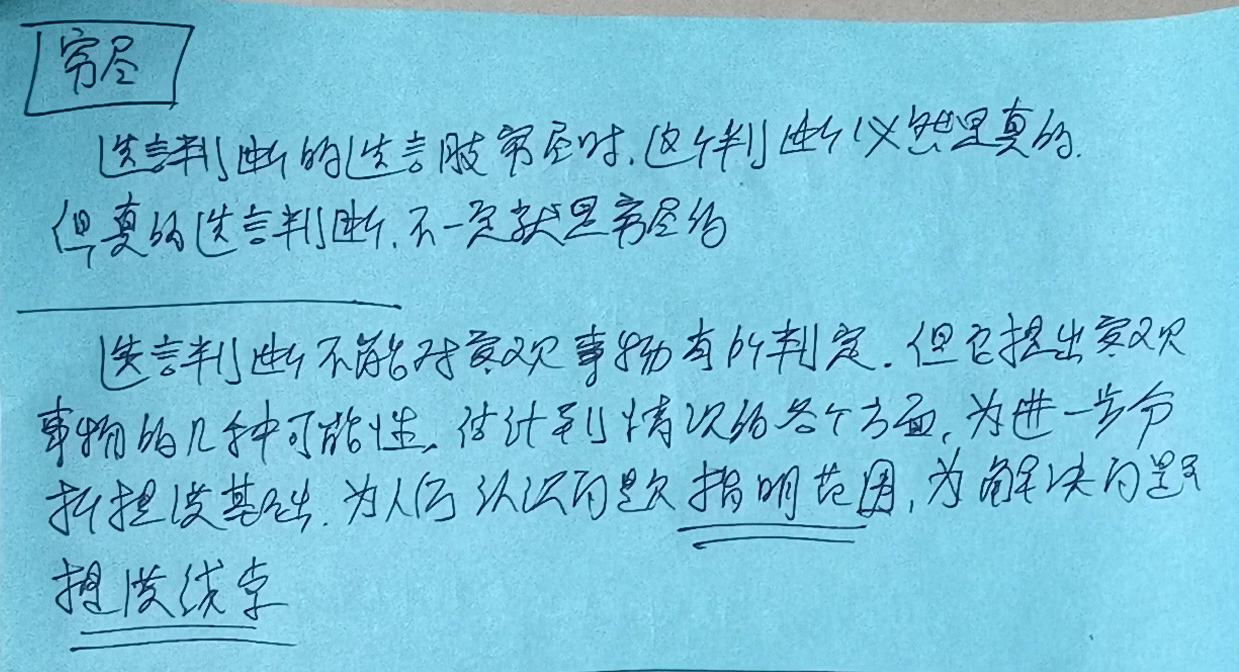 穷尽
选言判断的选言肢穷尽时,这个判断必然是真的.
但真的选言判断,不一定就是穷尽的
选言判断不能对客观事物有所判定.但它提出客观
事物的几种可能性,估计到情况的各个方面,为进一步分
析提供基础.为人们认识问题指明范围,为解决问题
提供线索